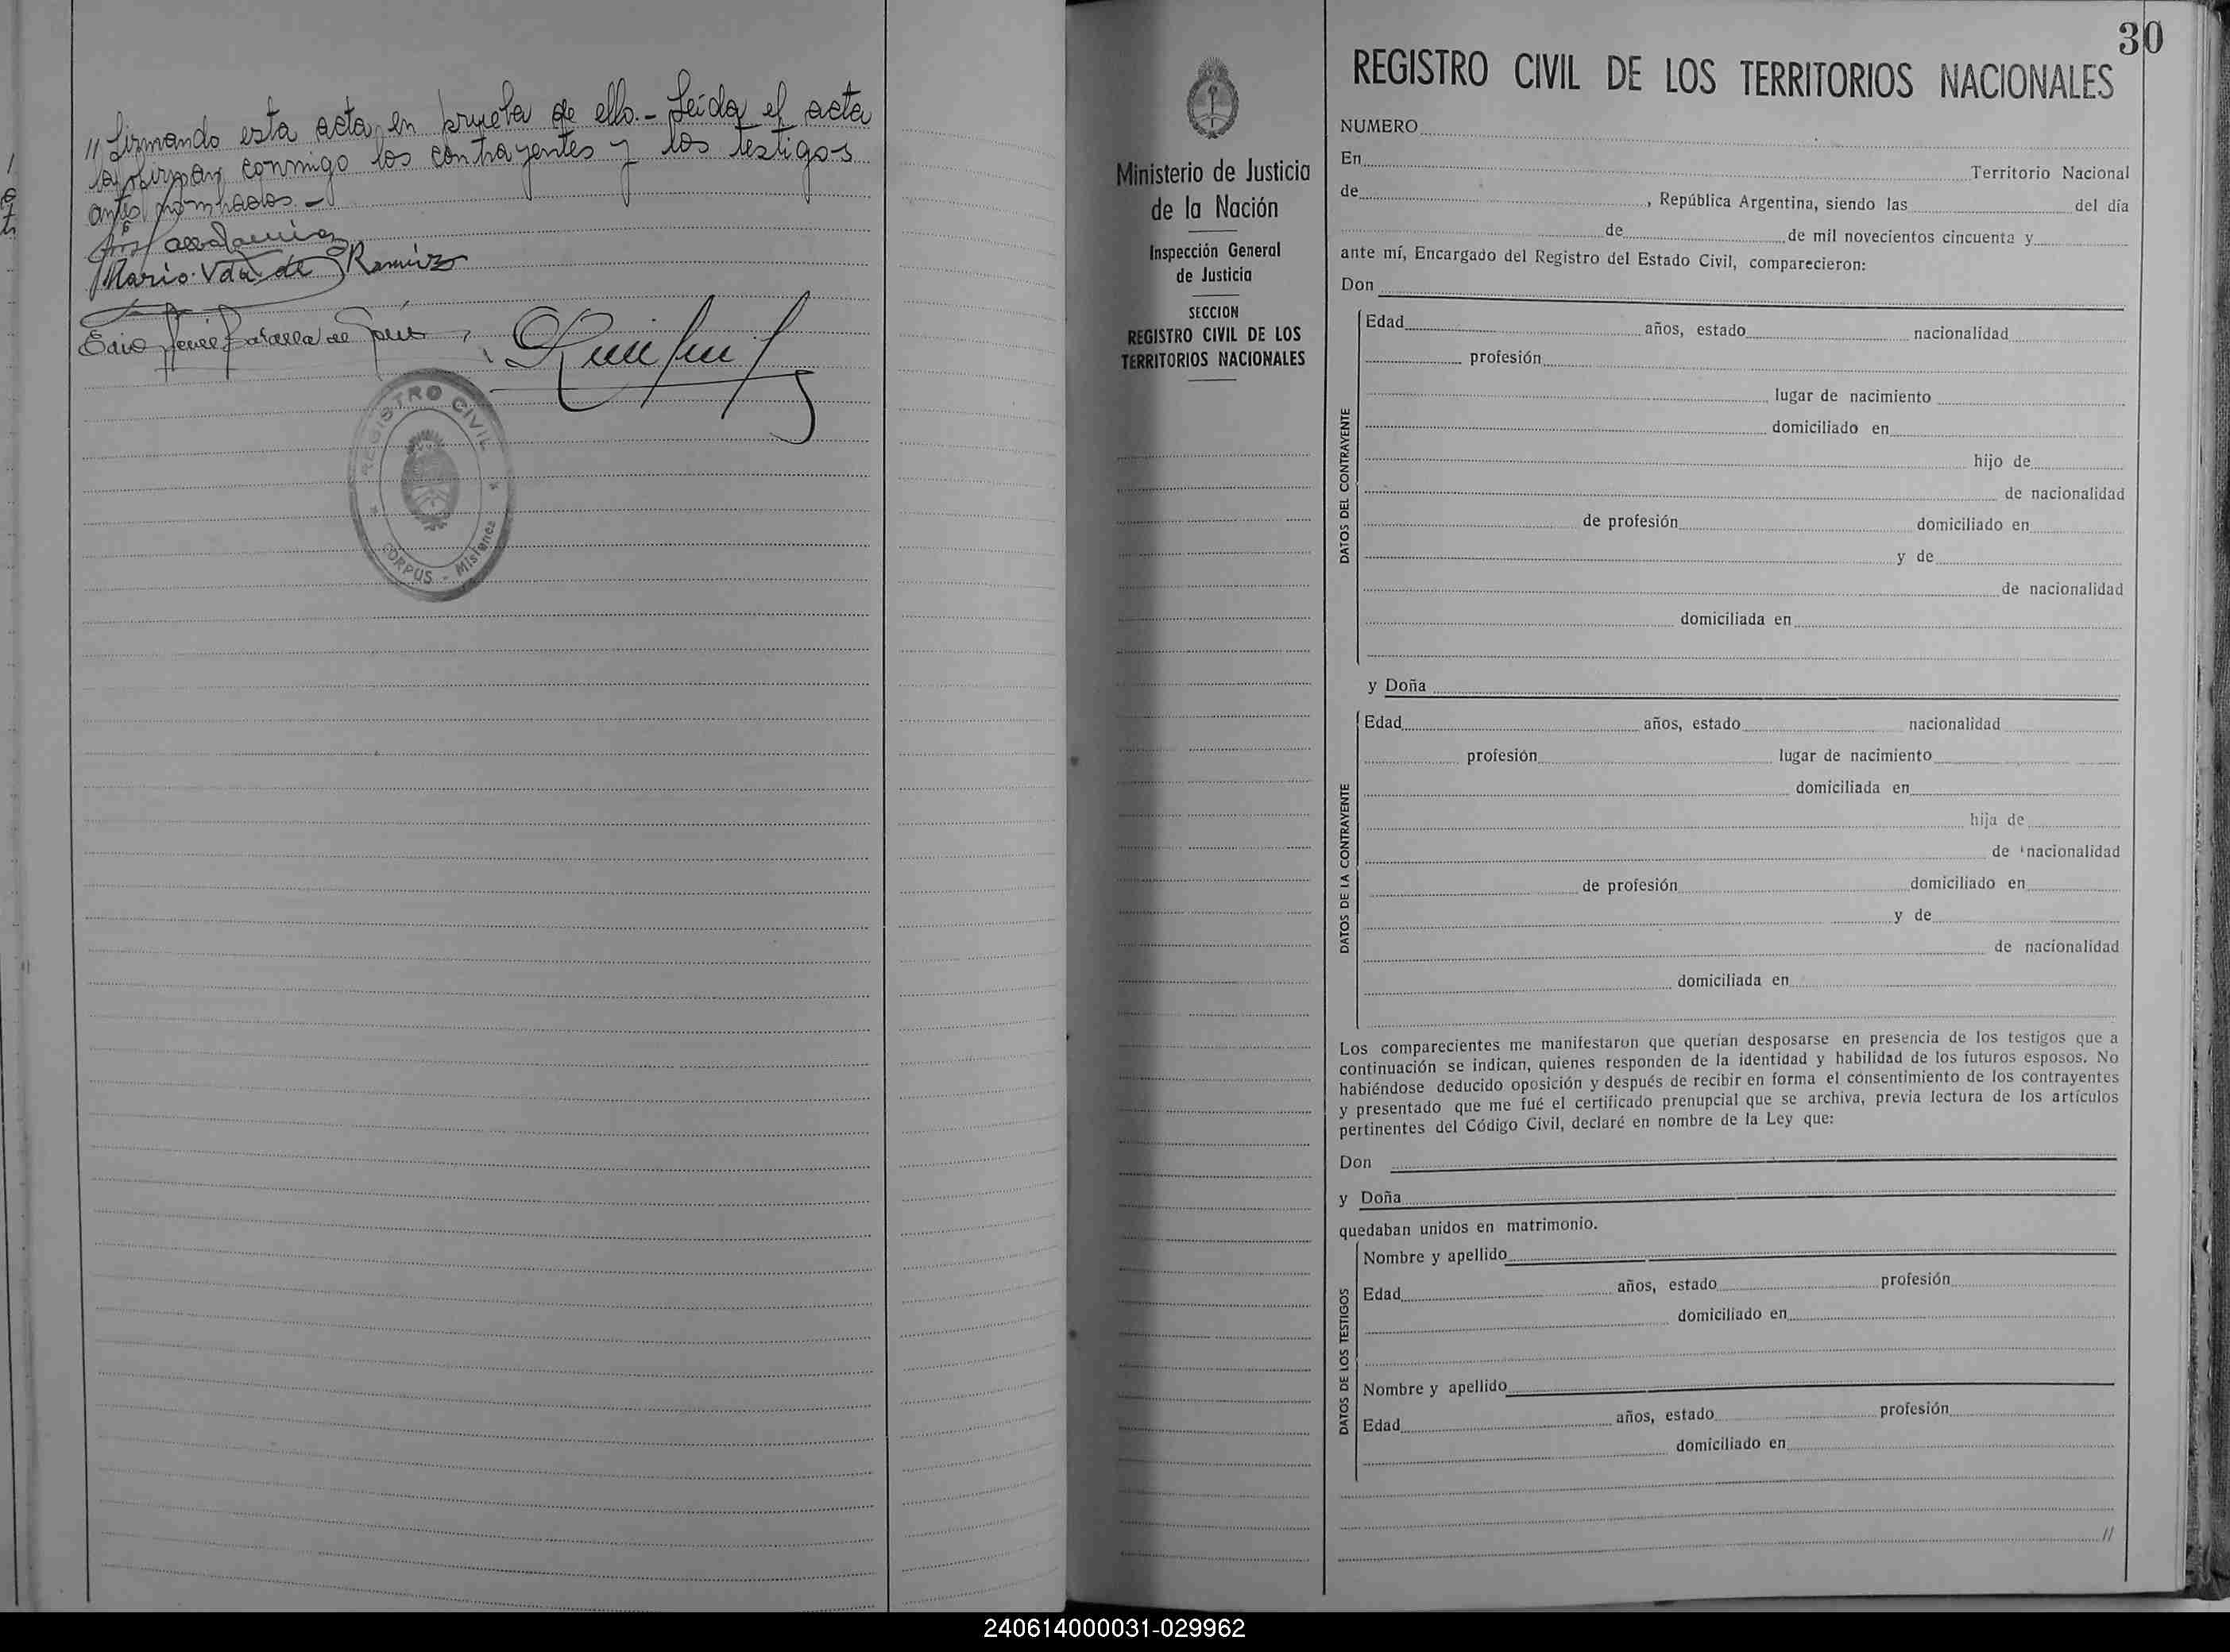 // firmando esta acta, en prueba de ello.- Leída el acta
la firman conmigo los contrayentes y los testigos
antes nombrados.-
Maria Vda de Ramirez
REGISTRO CIVIL
CORPUS - Misiones
30
Ministerio de Justicia
de la Nación
Inspección General
de Justicia
SECCION
REGISTRO CIVIL DE LOS
TERRITORIOS NACIONALES
REGISTRO CIVIL DE LOS TERRITORIOS NACIONALES
NUMERO
En Territorio Nacional
de , República Argentina, siendo las del día
de de mil novecientos cincuenta y
ante mí, Encargado del Registro del Estado Civil, comparecieron:
Don
DATOS DEL CONTRAYENTE
Edad años, estado nacionalidad
profesión
lugar de nacimiento
domiciliado en
hijo de
de nacionalidad
de profesión domiciliado en
y de
de nacionalidad
domiciliada en
y Doña
DATOS DE LA CONTRAYENTE
Edad años, estado nacionalidad
profesión lugar de nacimiento
domiciliada en
hija de
de nacionalidad
de profesión domiciliado en
y de
de nacionalidad
domiciliada en
Los comparecientes me manifestaron que querían desposarse en presencia de los testigos que a
continuación se indican, quienes responden de la identidad y habilidad de los futuros esposos. No
habiéndose deducido oposición y después de recibir en forma el consentimiento de los contrayentes
y presentado que me fué el certificado prenupcial que se archiva, previa lectura de los artículos
pertinentes del Código Civil, declaré en nombre de la Ley que:
Don
y Doña
quedaban unidos en matrimonio.
DATOS DE LOS TESTIGOS
Nombre y apellido
Edad años, estado profesión
domiciliado en
Nombre y apellido
Edad años, estado profesión
domiciliado en
//
240614000031-029962